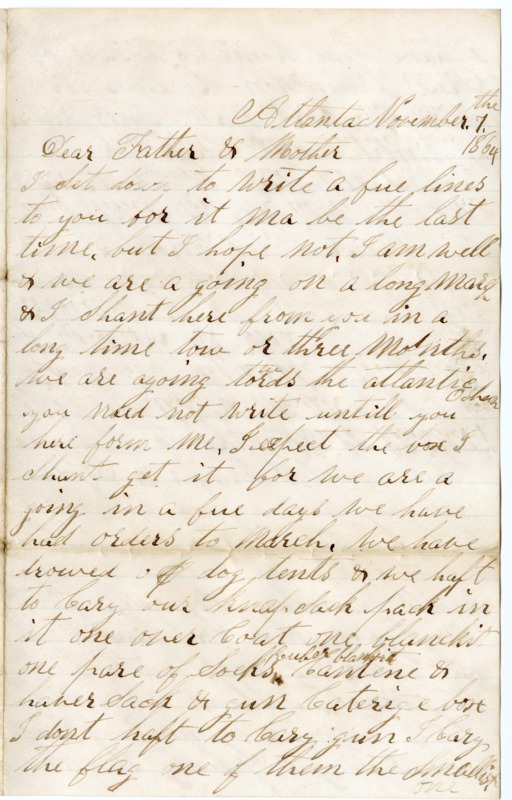 Atlanta November. the 7. 1864
Dear Father & Mother
I set down to write a fue lines
to you for it ma be the last
time, but I hope not, I am well
& we are a going on a long march
& I shant here from you in a
long time tow or three Mo'nths.
we are agoing tords the atlantic Oshan
you need not write untill you
here form me, I expect the box I
shant get it for we are a
going in a fue days we have
had orders to march. We have
trowed of dog tents & we haft
to Cary our knap sack pack in
it one over Coat one blanckit
one pare of Socks, Ruber blankit Cantene &
haver sack & gun Caterige box
I dont haft to Cary gun I Cary
the flag one of them the smallist
one